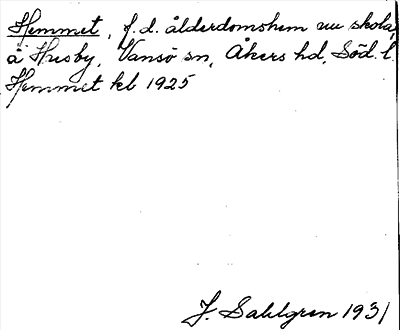 Hemmet, f.d. ålderdomshem nu skola,
å Husby, Vansö sn, Åkers hd, Söd. l.
Hemmet kbl 1925
J. Sahlgren 1931